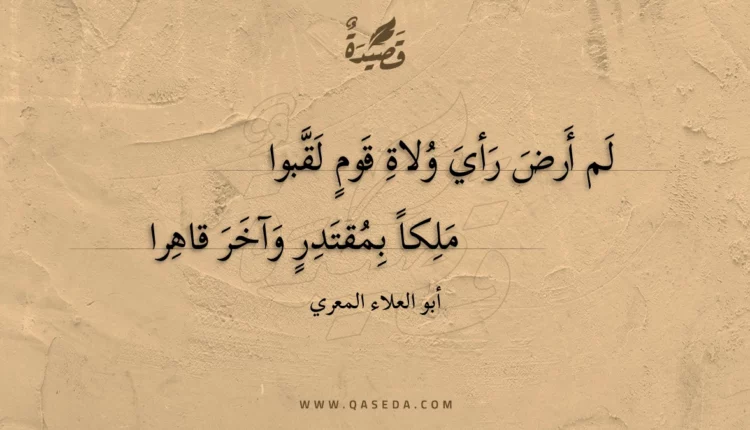 قَصِيدَةٌ
لَم أَرضَ رَأيَ وُلاةِ قَومٍ لَقَّبوا
مَلِكاً بِمُقتَدِرٍ وَآخَرَ قاهِرا
أبو العلاء المعري
WWW.QASEDA.COM